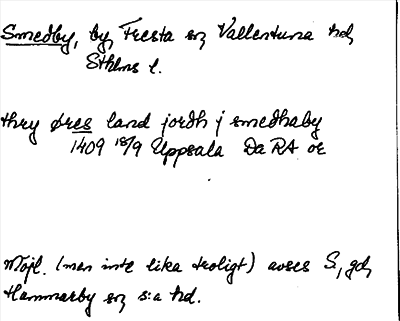 Smedby, by, Fresta sn, Vallentuna hd,
Sthlms l.
thry øres land jordh j smedhaby
1409 18/9 Uppsala DaRA or
Möjl. (men inte lika troligt) avses S., gd,
Hammarby sn, s:a hd.